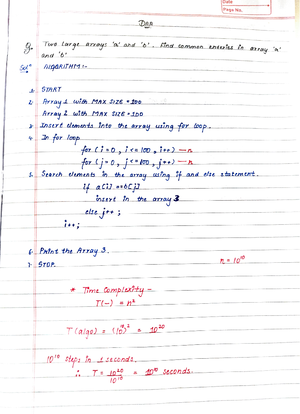 Date
Page No.
DAA
Q. Two large arrays 'a' and 'b'. Find common entries in array 'a'
and 'b'
Solⁿ ALGORITHM:-
1. START
2. Array 1 with MAX SIZE = 100
Array 2 with MAX SIZE = 100
3. Insert elements into the array using for loop.
4. In for loop
for (i=0, i<=100, i++) — n
for (j=0, j<=100, j++) — n
5. Search elements in the array using if and else statement.
if a[i] == b[j]
insert in the array 3
else j++;
i++;
6. Print the Array 3.
7. STOP.
n = 10¹⁰
* Time Complexity -
T(-) = n²
T(algo) = (10¹⁰)² = 10²⁰
10¹⁰ steps in 1 seconds.
∴ T = 10²⁰/10¹⁰ = 10¹⁰ seconds.